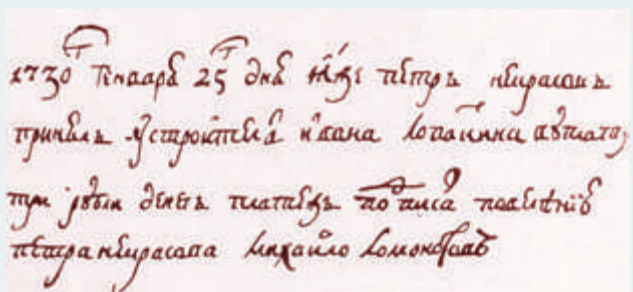 1730 Генваря 25 дня ѩзъ петръ некрасовъ
принѧлъ у строителя ивана лопаткина в уплату
три рубли денегъ платежъ подписа повелѣнию
петра некрасова михайло ломоносовъ